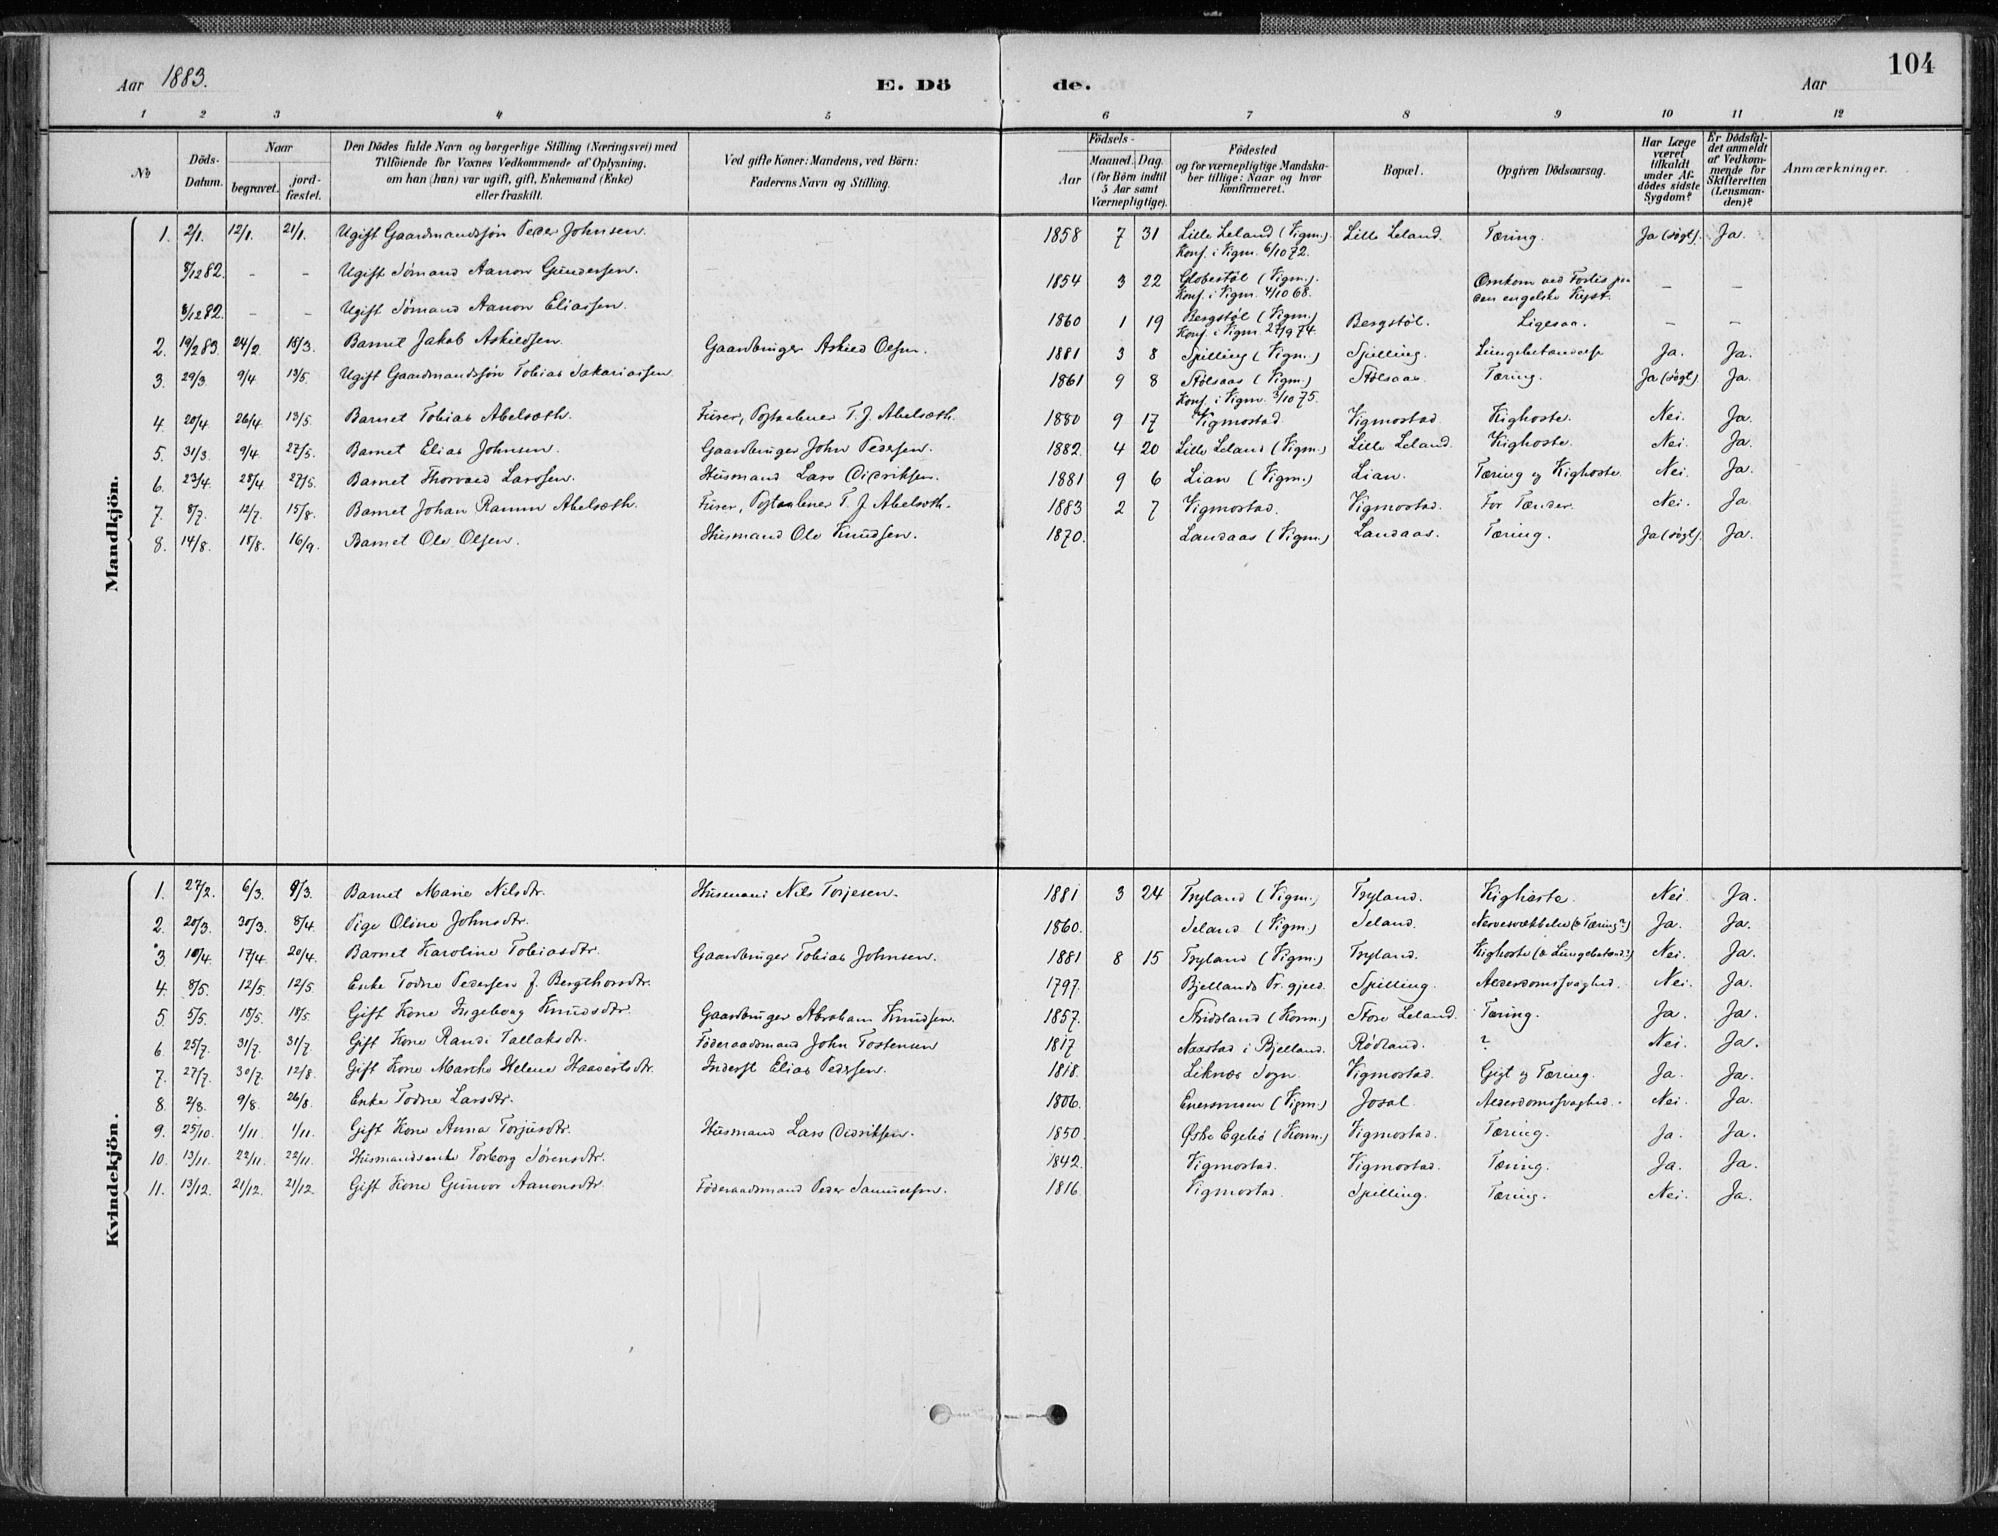 104
Aar 1883. E. Dö de. Aar
1 2 3 4 5 6 7 8 9 10 11 12
№ Döds-Datum. Naar begravet. jordfæstet. Den Dödes fulde Navn og borgerlige Stilling (Næringsvei) med Tilföiende for Voxnes Vedkommende af Oplysning, om han (hun) var ugift, gift, Enkemand (Enke) eller fraskilt. Ved gifte Koner: Mandens, ved Börn: Faderens Navn og Stilling. Födsels- Aar Maaned. Dag. (for Börn indtil 5 Aar samt Værnepligtige). Födested og for værnepligtige Mandskaber tillige: Naar og hvor konfirmeret. Bopæl. Opgiven Dödsaarsag. Har Læge været tilkaldt under Afdödes sidste Sygdom? Er Dödsfaldet anmeldt af Vedkommende for Skifteretten (Lensmanden)? Anmærkninger.
Mandkjön.
1. 2/1. 12/1. 21/1. Ugift Gaardmandssøn Peder Johnsen. 1858 7 31 Lille Leland (Vigm.) Konf. i Vigm. 6/10 72. Lille Leland. Tæring. Ja (søgt). Ja.
8/12 82. - - Ugift Sømand Aanon Gundersen. 1854 3 22 Globestøl (Vigm.) Konf. i Vigm. 4/10 68. Omkom ved Forlis paa den engelske Kyst. - -
8/12 82. - - Ugift Sømand Aanon Eliassen. 1860 1 19 Bergstøl (Vigm.) Konf. i Vigm. 27/9 74. Bergstøl. Ligesaa. - -
2. 19/2 83. 24/2. 18/3. Barnet Jakob Askildsen. Gaardbruger Askild Olsen. 1881 3 8 Spilling (Vigm.) Spilling. Lungebetændelse Ja. Ja.
3. 29/3. 9/4. 13/5. Ugift Gaardmandssøn Tobias Sakariassen. 1861 9 8 Stølsaas (Vigm.) Konf. i Vigm. 3/10 75. Stølsaas. Tæring. Ja (søgt). Ja.
4. 20/4. 26/4. 13/5. Barnet Tobias Abelseth. Furer, Postaabner T. J. Abelseth. 1880 9 17 Vigmostad. Vigmostad. Kighoste. Nei. Ja.
5. 31/3. 9/4. 27/5. Barnet Elias Johnsen. Gaardbruger John Pedersen. 1882. 4 20 Lille Leland (Vigm.) Lille Leland. Kighoste. Nei. Ja.
6. 23/4. 28/4. 27/5. Barnet Thorvald Larssen. Husmand Lars Didriksen. 1881 9 6 Lian (Vigm.) Lian. Tæring og Kighoste Nei. Ja.
7. 8/7. 12/7. 15/8. Barnet Johan Ramm Abelseth. Furer, Postaabner T. J. Abelseth. 1883 2 7 Vigmostad. Vigmostad. For Tænder. Nei. Ja
8. 14/8. 18/8. 16/9. Barnet Ole Olsen. Husmand Ole Knudsen. 1870. Landaas (Vigm.) Landaas. Tæring. Ja (søgt). Ja.
Kvindekjön.
1. 27/2. 6/3. 9/3. Barnet Marie Nilsdtr. Husmand Nils Torjesen. 1881 3 24 Tryland (Vigm.) Tryland. Kighoste. Nei Ja.
2. 20/3. 30/3. 8/4. Pige Oline Johnsdtr. 1860. Seland (Vigm.) Seland. Nervesvækkelse (& Tæring?) Ja. Ja.
3. 10/4. 17/4. 20/4. Barnet Karoline Tobiasdtr. Gaardbruger Tobias Johnsen. 1881 8 15 Tryland (Vigm.) Tryland. Kighoste (& Lungebetænd?) Nei. Ja.
4. 8/5. 12/5. 12/5. Enke Todne Pedersen f. Bergthorsdtr. 1797. Bjellands Pr.gjeld. Spilling. Alderdomssvaghed. Nei. Ja.
5. 5/5. 18/5. 18/5. Gift Kone Ingeborg Knudsdtr. Gaardbruger Abraham Knudsen. 1857. Stridsland (Konm.) Store Leland. Tæring. Ja. Ja.
6. 25/7. 31/7. 31/7. Gift Kone Randi Tallaksdtr. Föderaadsmand John Tostensen 1817 Naastad i Bjelland. Rödland. ? Nei. Ja.
7. 27/7. 30/7. 12/8. Gift Kone Marthe Helene Haavertsdtr. Inderst Elias Pedersen. 1818. Liknæs Sogn. Vigmostad. Gigt og Tæring. Ja. Ja.
8. 2/8. 9/8. 26/8. Enke Todne Larsdtr. 1806. Eversmoen (Vigm.) Josal. Alderdomssvaghed. Nei. Ja.
9. 25/10. 1/11. 1/11. Gift Kone Anna Torjusdtr. Husmand Lars Didriksen. 1850. Østre Egelid (Konm.) Vigmostad. Tæring. Ja. Ja.
10. 13/11. 22/11. 22/11. Husmandsenke Torborg Sørensdtr. 1842. Vigmostad. Vigmostad. Tæring. Ja. Ja.
11. 13/12. 21/12. 21/12. Gift Kone Gunvor Aanonsdtr. Föderaadsmand Peder Samuelsen. 1816. Vigmostad. Spilling. Tæring. Nei. Ja.